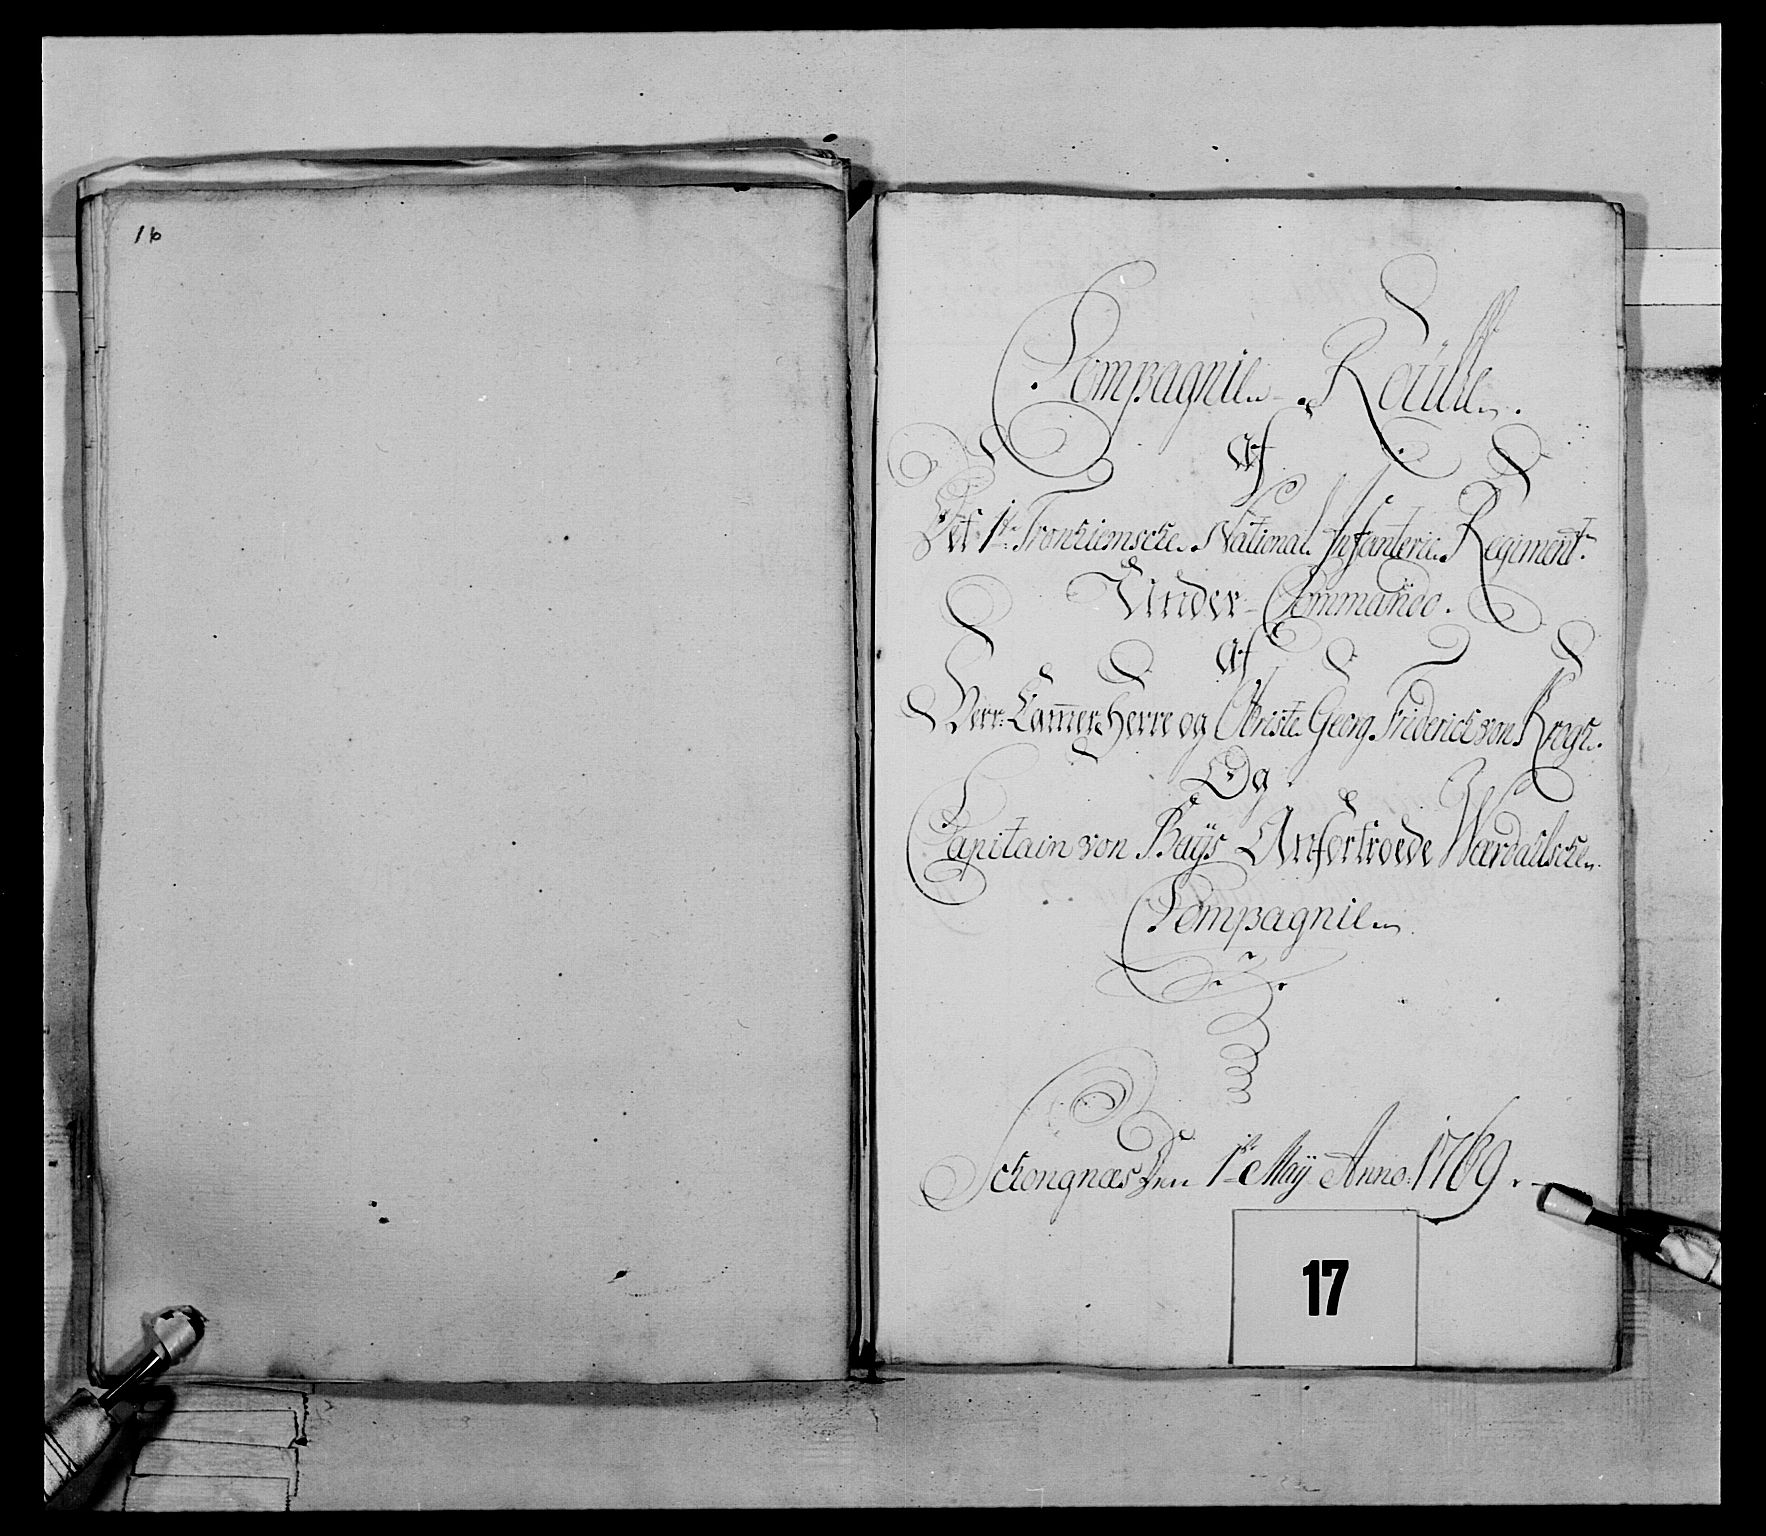 16
Compagnie Roulle.
af
Det 1te Tronhiemske National Infanterie Regiment.
Under Commando.
af
Herr Camer Herre og Obriste Georg Friderich von Krogh.
Og
Capitain von Büÿs Anfortroede Wærdahlske
Compagnie
Schongnæs Den 1te Maÿ Anno: 1769.
17